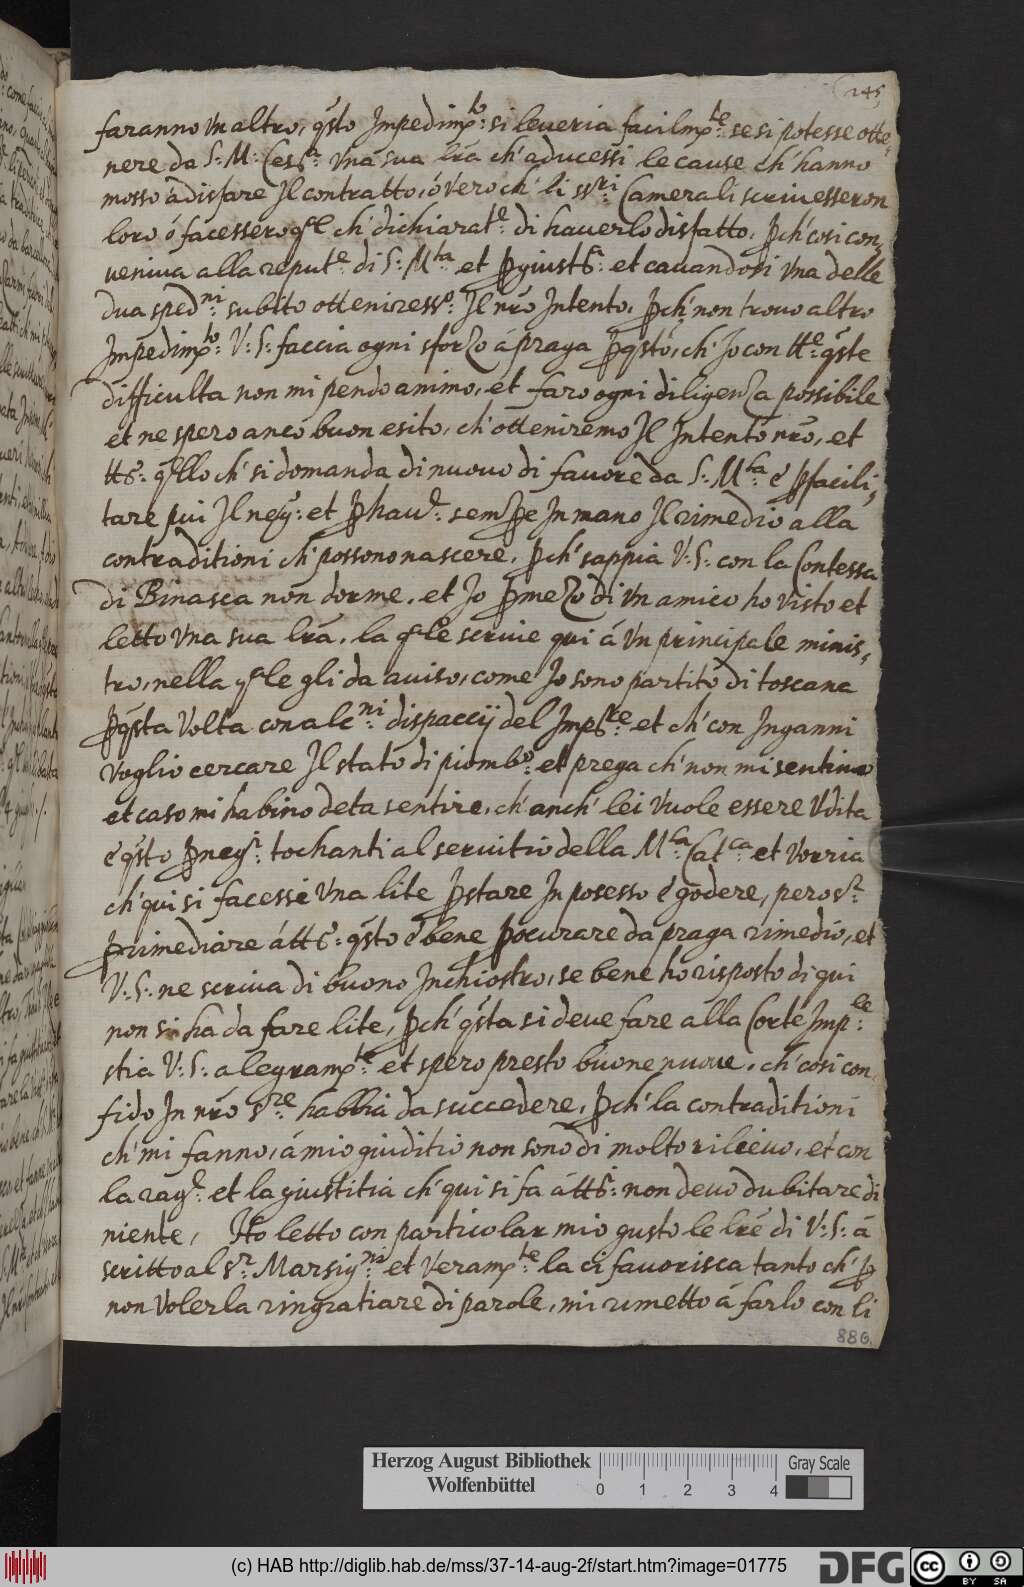 245
faranno un altro, q̃sto Impedimp:to si leveria facilmp:te se si potesse otte,
nere da S: M: Ces:a una sua lr̃a ch' aducessi le cause ch' hanno
mosso à disfare Il contratto, ó vero ch' li ss:ri Camerali scrivesseron
loro ó facessero q̃l ch' dichiarat:e di haverlo disfatto, p̱ch' cosi con,
veniva alla reput:e di S: M:ta et p̱ giust:a et cavandosi una delle
dua sped:ni subito otteniress:o Il nr̃o Intento, p̱ch' non trovo altro
Impedimp:to V: S: faccia ogni sforzo á praga p̱ q̃sto, ch' Jo con tt:e q̃ste
difficulta non mi pendo animo, et faro ogni diligenza possibile
et ne spero anco buon esito, ch' otteniremo Il Intento nr̃o, et
tt:o q̃llo ch' si domanda di nuovo di favore da S: M:ta é p̱ facili,
tare pui Il neg:o et p̱ hav:e semp̱e In mano Il rimedio alla
contraditioni ch' possono nascere, p̱ch' sappia V: S: con la Contessa
di Binasca non dorme, et Jo p̱ mezo di un amico ho visto et
letto una sua lr̃a, la q̃le scrive qui á un principale minis,
tro, nella q̃le gli da aviso, come Jo sono partito di toscana
p̱ q̃sta volta con alc:ni dispaccij del Imp:re et ch' con Inganni
voglio cercare Il stato di piomb:o et prega ch' non mi sentino
et caso mi habino deta sentire, ch' anch' lei vuole essere udita
é q̃sto p̱ neg:i tochanti al servitio della M:ta Cat:ca et vorria
ch' qui si facessi una lite p̱ stare In posesso é godere, pero s:r
p̱ rimediare á tt:o q̃sto é bene p̱ocurare da praga rimedio, et
V: S: ne scriva di buono Inchiostro, se bene ho risposto di qui
non si ha da fare lite, p̱ch' q̃sta si deve fare alla Corte Imp:le
stia V: S: alegramp:te et spero presto buone nuove, ch' cosi con,
fido In nr̃o s:re habbia da succedere, p̱ch' la contraditioni
ch' mi fanno, á mio giuditio non sono di molto rilievo, et con
la rag:e et la giustitia ch' qui si fa á tt:i non devo dubitare di
niente, Ho letto con particolar mio gusto le lr̃e di V: S: á
scritto al s:r Marsig:ni et veramp:te la ci favorisca tanto ch' p̱
non volerla ringratiare di parole, mi rimetto á farlo con li
886.
Herzog August Bibliothek
Wolfenbüttel
0 1 2 3 4
Gray Scale
(c) HAB http://diglib.hab.de/mss/37-14-aug-2f/start.htm?image=01775
DFG
cc BY SA